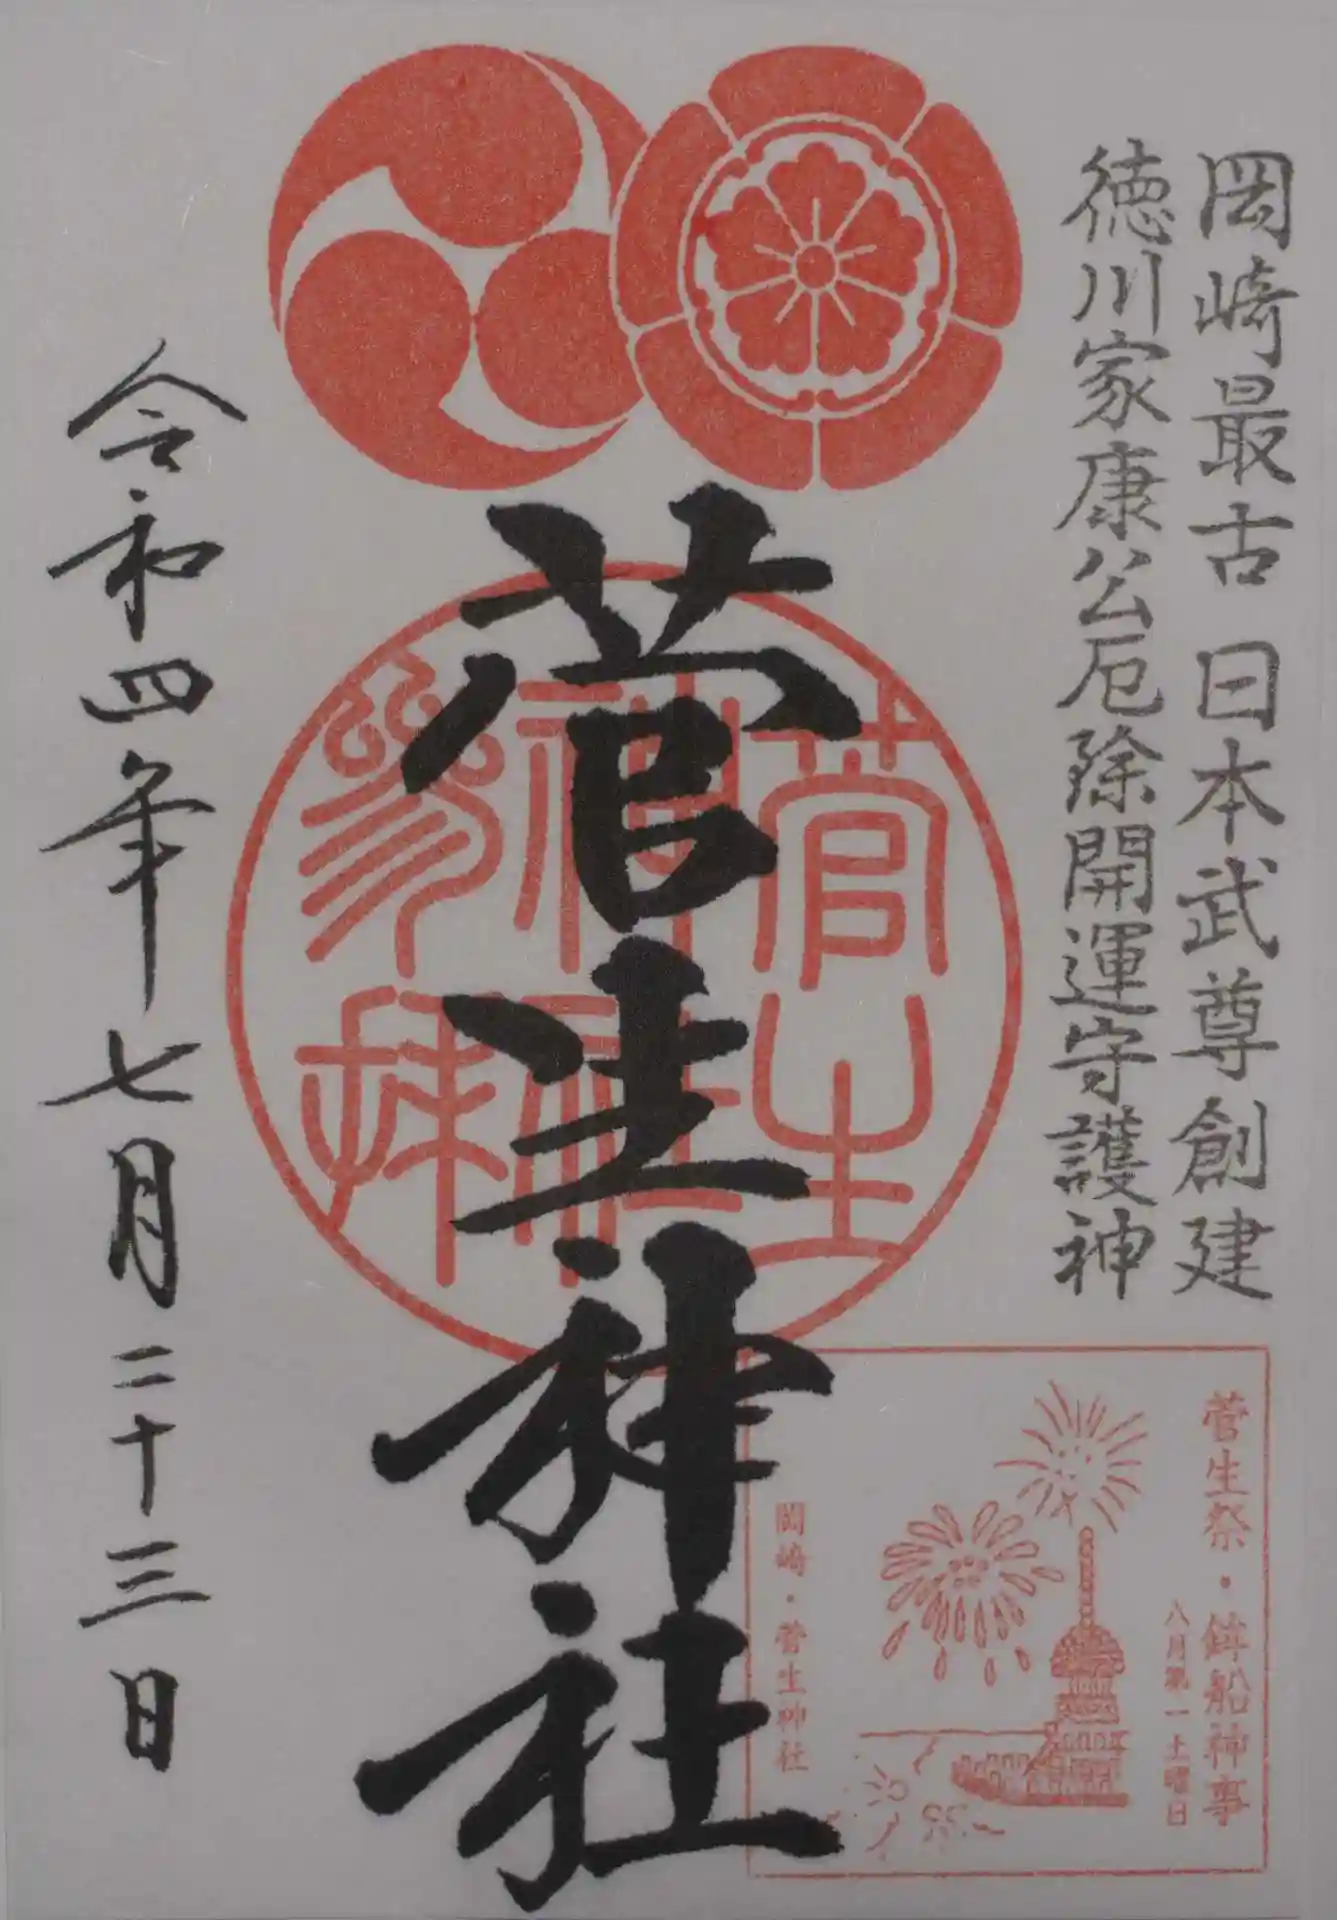 岡崎最古 日本武尊創建
徳川家康公厄除開運守護神
菅生神社
菅生
神社
参拝
令和四年七月二十三日
菅生祭・鉾船神事
八月第一土曜日
岡崎・菅生神社